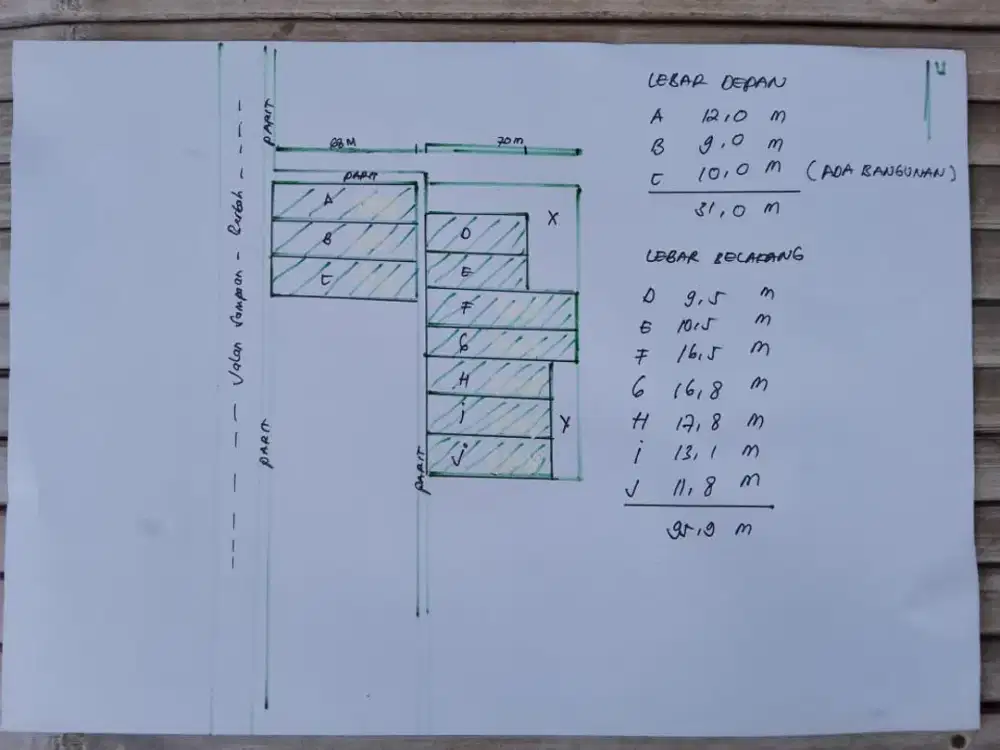 LEBAR DEPAN
A 12,0 m
B 9,0 m
C 10,0 m (ADA BANGUNAN)
31,0 m
LEBAR BELAKANG
D 9,5 m
E 10,5 m
F 16,5 m
G 16,8 m
H 17,8 m
i 13,1 m
J 11,8 m
95,9 m
PARIT
70 m
PARIT
A
B
C
D
E
F
G
H
i
J
X
Y
Jalan
PARIT
PARIT
U